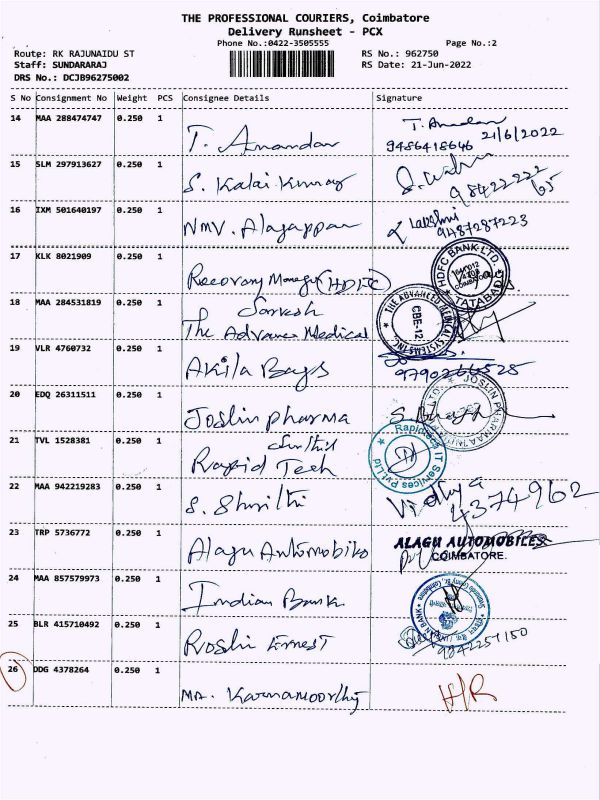 THE PROFESSIONAL COURIERS, Coimbatore
Delivery Runsheet - PCX
Phone No.:0422-3505555 Page No.:2
Route: RK RAJUNAIDU ST RS No.: 962750
Staff: SUNDARARAJ RS Date: 21-Jun-2022
DRS No.: DCJB96275002
S No Consignment No Weight PCS Consignee Details Signature
14 MAA 288474747 0.250 1 T. Anandan T. Anandan
21/6/2022
9486418646
15 SLM 297913627 0.250 1 S. Kalai Kumar
98422222
65
16 IXM 501640197 0.250 1 NMV. Alagappan Lakshmi
9487287223
17 KLK 8021909 0.250 1 Recovery Manager (HDFC) HDFC BANK LTD.
TATABAD
18 MAA 284531819 0.250 1 Sarkesh
The Advance Medical THE ADVANCED MEDICAL SYSTEMS INC
CBE-12
19 VLR 4760732 0.250 1 Akila Bags
20 EDQ 26311511 0.250 1 Joslin pharma JOSLIN PHARMA
21 TVL 1528381 0.250 1 Senthil
Rapid Tech Rapidtech IT Services Pvt Ltd
22 MAA 942219283 0.250 1 S. Shruthi Vidhya
4374962
23 TRP 5736772 0.250 1 Alagu Automobiko ALAGU AUTOMOBILES
COIMBATORE.
24 MAA 857579973 0.250 1 Indian Bank
25 BLR 415710492 0.250 1 Roshi Ernest 9842257150
26 DDG 4378264 0.250 1 MR. Karnamoorthy H/R